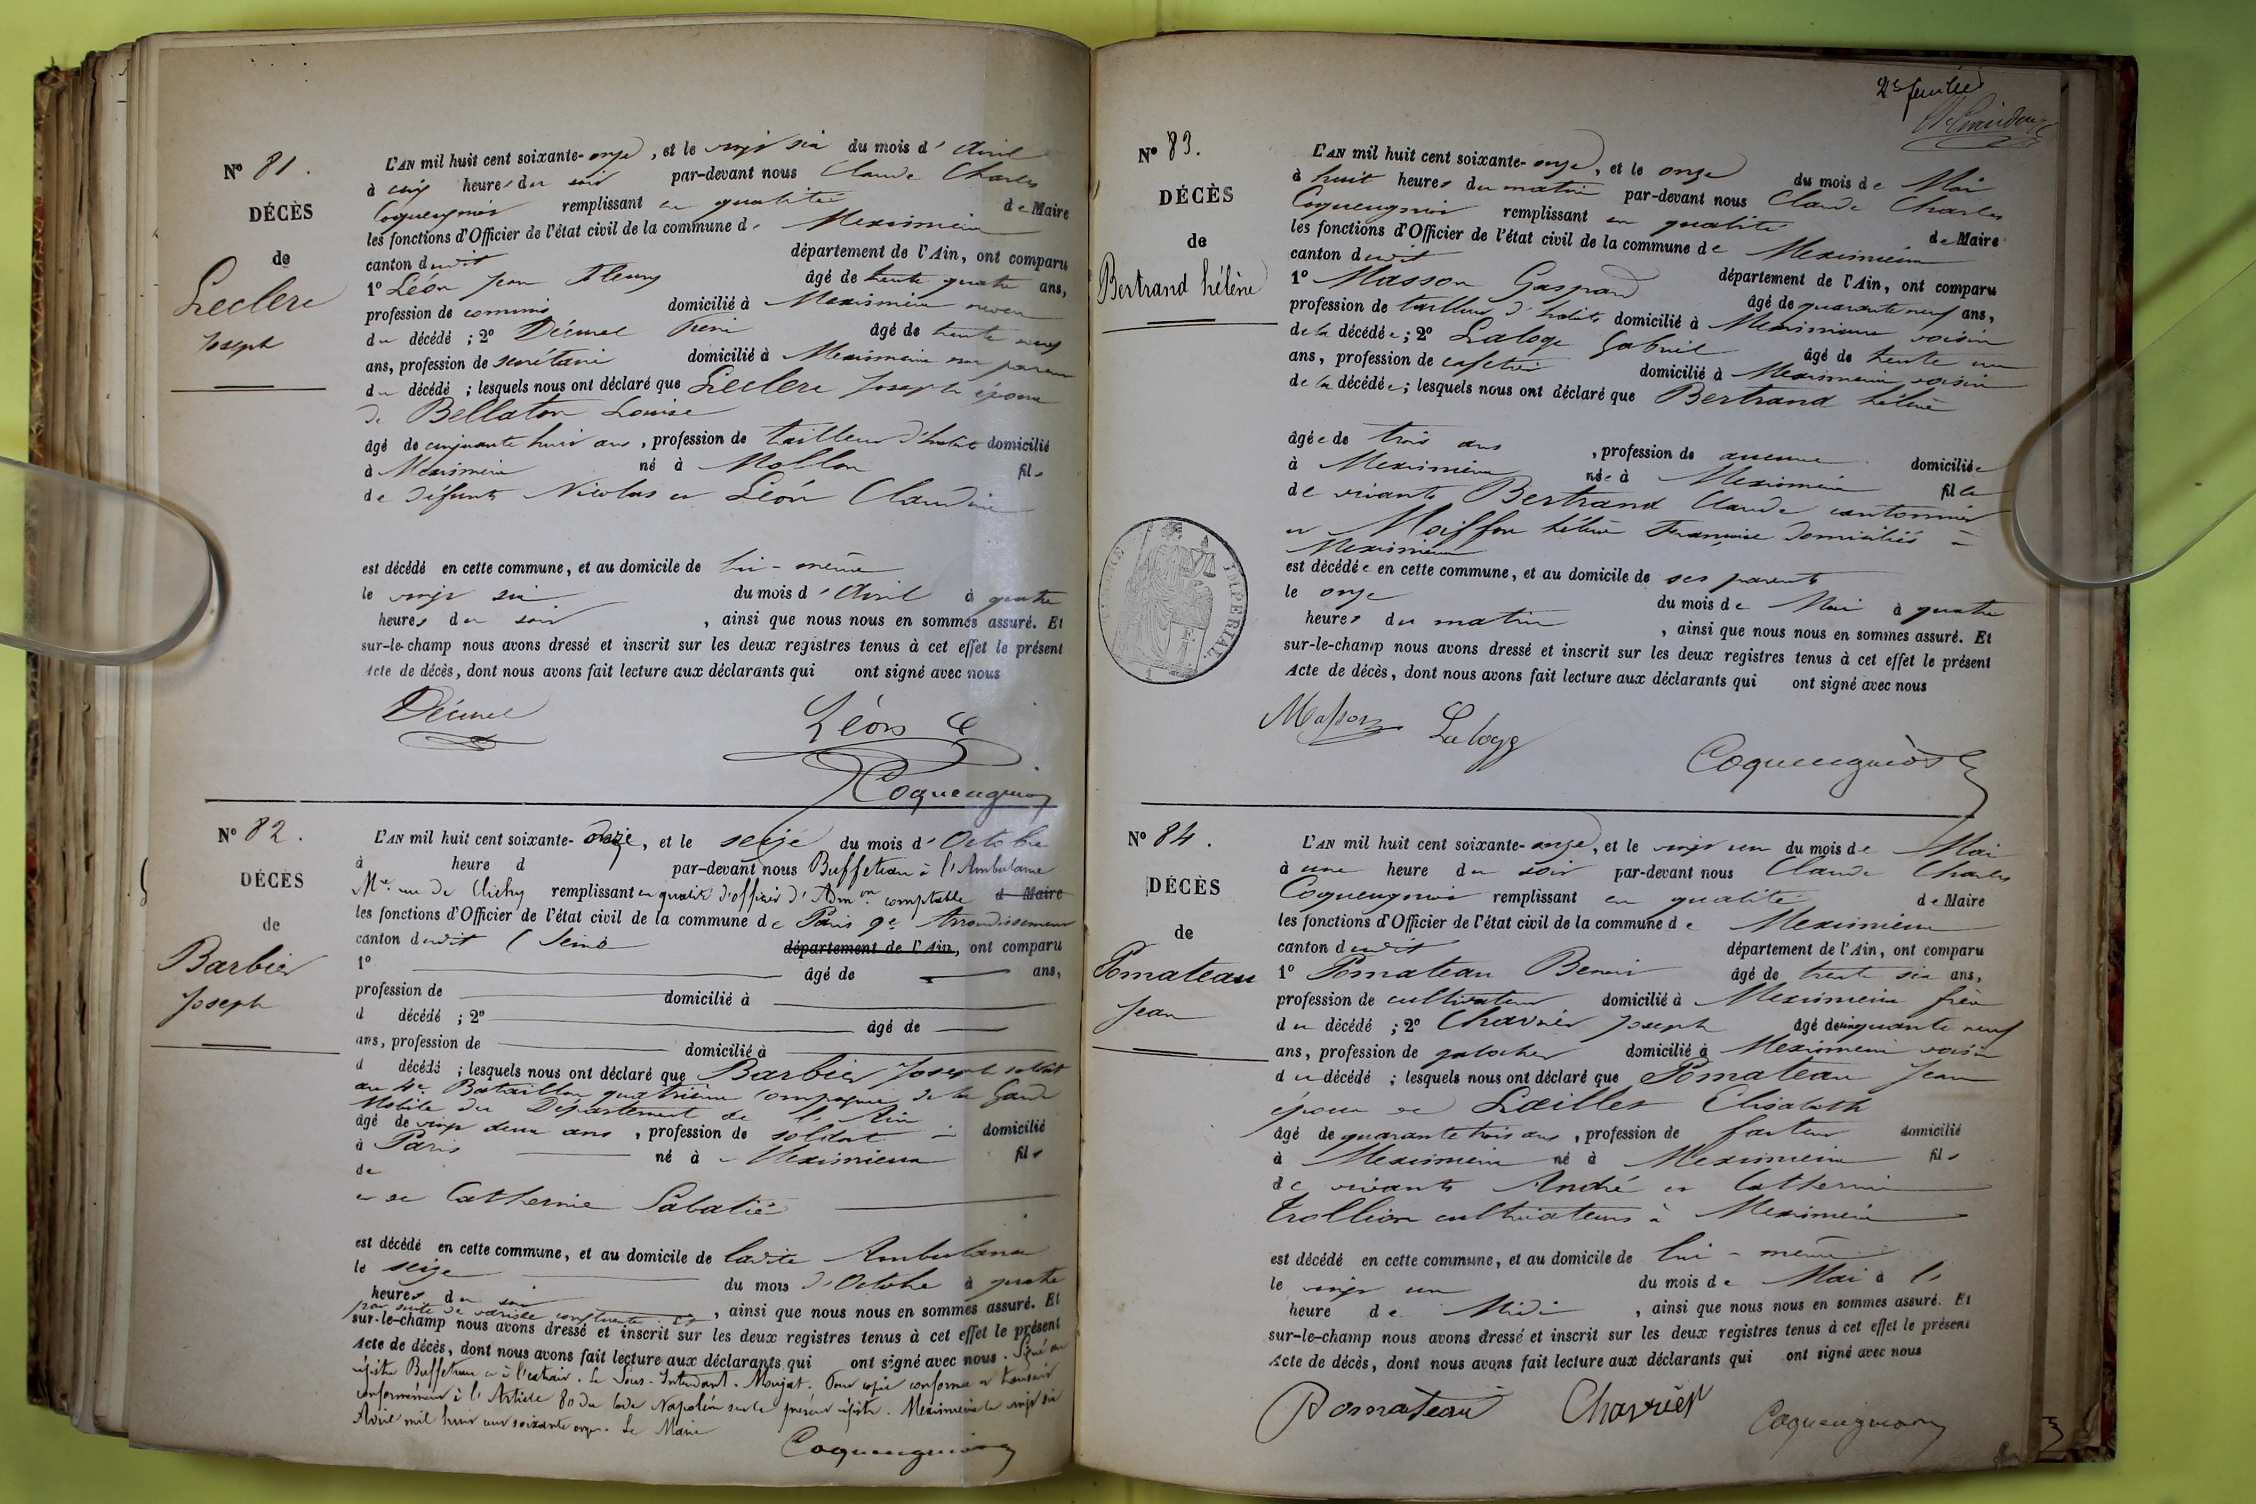 N° 81.
DÉCÈS
de
Leclerc
Joseph
L'AN mil huit cent soixante-onze, et le vingt six du mois d'Avril
à cinq heures du soir par-devant nous Claude Charles
Coqueugniot remplissant en qualité de Maire
les fonctions d'Officier de l'état civil de la commune de Meximieux
canton dudit département de l'Ain, ont comparu
1° Léon Jean Fleury âgé de trente quatre ans,
profession de commis domicilié à Meximieux neveu
du décédé ; 2° Décurel âgé de trente neuf
ans, profession de secrétaire domicilié à Meximieux non parent
du décédé ; lesquels nous ont déclaré que Leclerc Joseph époux
de Bellaton Louise
âgé de cinquante huit ans, profession de tailleur d'habits domicilié
à Meximieux né à Mollon fils
de défunts Nicolas et Léon Claudine
est décédé en cette commune, et au domicile de lui-même
le vingt six du mois d'Avril à quatre
heures du soir, ainsi que nous nous en sommes assuré. Et
sur-le-champ nous avons dressé et inscrit sur les deux registres tenus à cet effet le présent
Acte de décès, dont nous avons fait lecture aux déclarants qui ont signé avec nous
Décurel Léon
Coqueugniot
N° 82.
DÉCÈS
de
Barbier
Joseph
L'AN mil huit cent soixante-onze, et le seize du mois d'Octobre
à heure d par-devant nous Buffeteau à l'Ambulance
Mre rue de Clichy remplissant en qualité d'officier d'Admon comptable d Maire
les fonctions d'Officier de l'état civil de la commune de Paris 9e Arrondissement
canton dudit (Seine département de l'Ain, ont comparu
1° âgé de ans,
profession de domicilié à
d décédé ; 2° âgé de
ans, profession de domicilié à
d décédé ; lesquels nous ont déclaré que Barbier Joseph soldat
au 4e Bataillon quatrième compagnie de la Garde
Mobile du Département de l'Ain
âgé de vingt deux ans, profession de soldat domicilié
à Paris né à Meximieux fils
de
et de Catherine Sabatié
est décédé en cette commune, et au domicile de ladite Ambulance
le seize du mois d'Octobre à quatre
heures du soir, ainsi que nous nous en sommes assuré. Et
par suite de variole confluente. Et
sur-le-champ nous avons dressé et inscrit sur les deux registres tenus à cet effet le présent
Acte de décès, dont nous avons fait lecture aux déclarants qui ont signé avec nous. Signé au
registre Buffeteau et à l'extrait. Le Sous-Intendant. Moujat. Pour copie conforme et transcrit
conformément à l'Article 80 du Code Napoléon sur le présent registre. Meximieux le vingt six
Avril mil huit cent soixante onze. Le Maire
Coqueugniot
2es feuillet
N° 83.
DÉCÈS
de
Bertrand hélène
L'AN mil huit cent soixante-onze, et le onze du mois de Mai
à huit heures du matin par-devant nous Claude Charles
Coqueugniot remplissant en qualité de Maire
les fonctions d'Officier de l'état civil de la commune de Meximieux
canton dudit département de l'Ain, ont comparu
1° Masson Gaspard âgé de quarante neuf ans,
profession de tailleur d'habits domicilié à Meximieux voisin
de la décédée ; 2° Laloge Gabriel âgé de trente un
ans, profession de cafetier domicilié à Meximieux voisin
de la décédée ; lesquels nous ont déclaré que Bertrand hélène
âgée de trois ans, profession de aucune domiciliée
à Meximieux née à Meximieux fille
de vivants Bertrand Claude cantonnier
et Moiffon hélène Françoise domiciliés à
Meximieux
est décédée en cette commune, et au domicile de ses parents
le onze du mois de Mai à quatre
heures du matin, ainsi que nous nous en sommes assuré. Et
sur-le-champ nous avons dressé et inscrit sur les deux registres tenus à cet effet le présent
Acte de décès, dont nous avons fait lecture aux déclarants qui ont signé avec nous
IMPERIAL
Masson Laloge
Coqueugniot
N° 84.
DÉCÈS
de
Pomateau
Jean
L'AN mil huit cent soixante-onze, et le vingt un du mois de Mai
à une heure du soir par-devant nous Claude Charles
Coqueugniot remplissant en qualité de Maire
les fonctions d'Officier de l'état civil de la commune de Meximieux
canton dudit département de l'Ain, ont comparu
1° Pomateau Benoit âgé de trente six ans,
profession de cultivateur domicilié à Meximieux frère
du décédé ; 2° Chavrier Joseph âgé de cinquante neuf
ans, profession de galocher domicilié à Meximieux voisin
du décédé ; lesquels nous ont déclaré que Pomateau Jean
époux de Lœillet Elisabeth
âgé de quarante trois ans, profession de facteur domicilié
à Meximieux né à Meximieux fils
de vivants André et Catherine
Trollion cultivateurs à Meximieux
est décédé en cette commune, et au domicile de lui-même
le vingt un du mois de Mai à l'
heure de Midi, ainsi que nous nous en sommes assuré. Et
sur-le-champ nous avons dressé et inscrit sur les deux registres tenus à cet effet le présent
Acte de décès, dont nous avons fait lecture aux déclarants qui ont signé avec nous
Pomateau Chavrier Coqueugniot